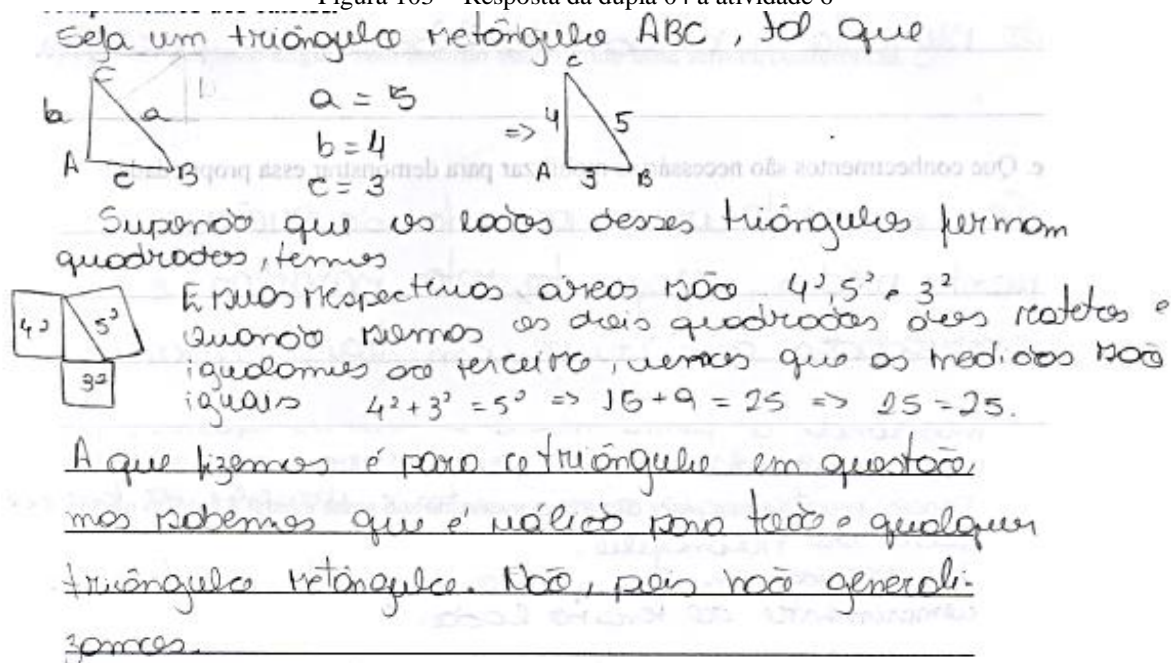 Figura 103 – Resposta da dupla 04 à atividade 6
Seja um triângulo retângulo ABC, tal que
C
b a
A c B
a = 5
b = 4
c = 3
=>
C
4 5
A 3 B
e. Que conhecimentos são necessários mobilizar para demonstrar essa propriedade
Supondo que os lados desses triângulos formam
quadrados, temos
4² 5²
3²
E suas respectivas áreas são 4², 5² e 3²
quando somos os dois quadrados dos catetos e
igualamos ao terceiro, vemos que as medidas são
iguais 4² + 3² = 5² => 16 + 9 = 25 => 25 = 25.
A que fizemos é para o triângulo em questão,
mas sabemos que é válido para todo e qualquer
triângulo retângulo. Não, pois não generali-
zamos.